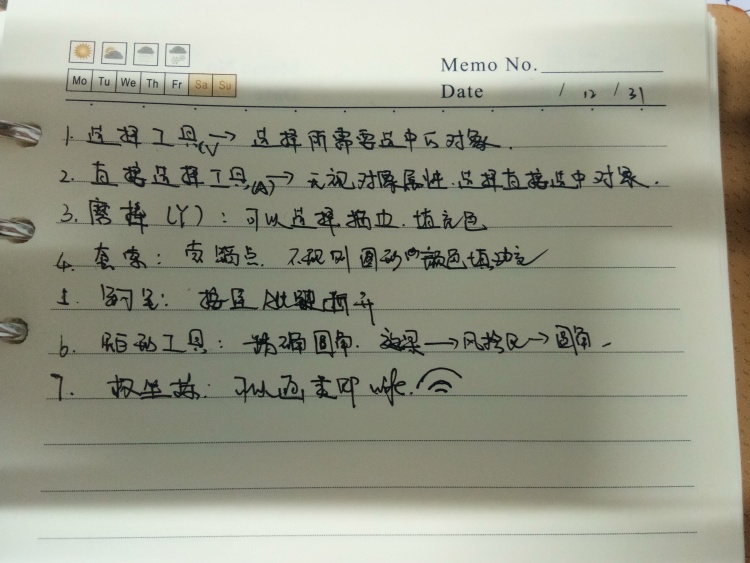 Memo No.
Mo Tu We Th Fr Sa Su
Date / 12 / 31
1. 选择工具(V) → 选择所需要选中的对象.
2. 直接选择工具(A) → 无视对象属性.选择直接选中对象.
3. 魔棒(Y): 可以选择描边.填充色
4. 套索: 索锚点. 不规则图形的颜色填充
5. 钢笔: 按住 Alt键断开
6. 工具: 精确圆角. 效果 → 风格化 → 圆角.
7. 极坐标: 可以画类似 wife.